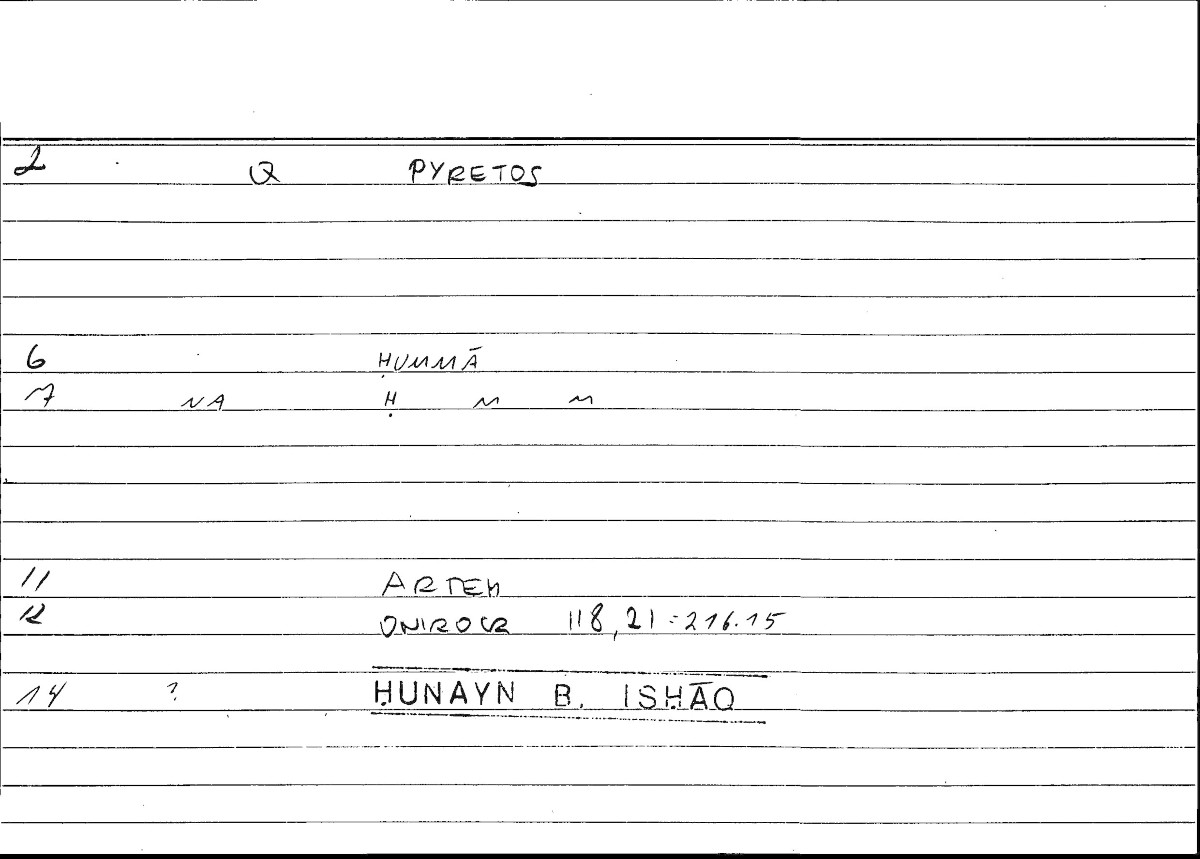 2 Q PYRETOS
6 ḤUMMĀ
7 NA Ḥ M M
11 ARTEM
12 ONIROCR 118,21=216.15
14 ? ḤUNAYN B. ISḤĀQ